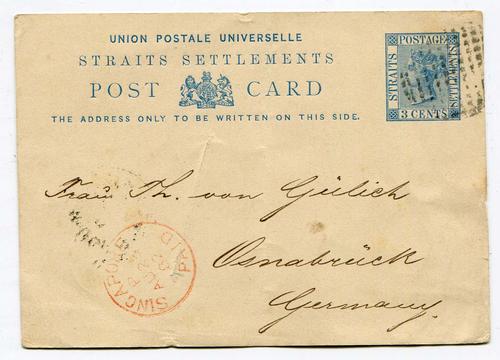 UNION POSTALE UNIVERSELLE
STRAITS SETTLEMENTS
POST CARD
THE ADDRESS ONLY TO BE WRITTEN ON THIS SIDE.
STRAITS
POSTAGE
SETTLEMENTS
3 CENTS
Frau Th. von Gülich
Osnabrück
Germany.
SINGAPORE
PAID